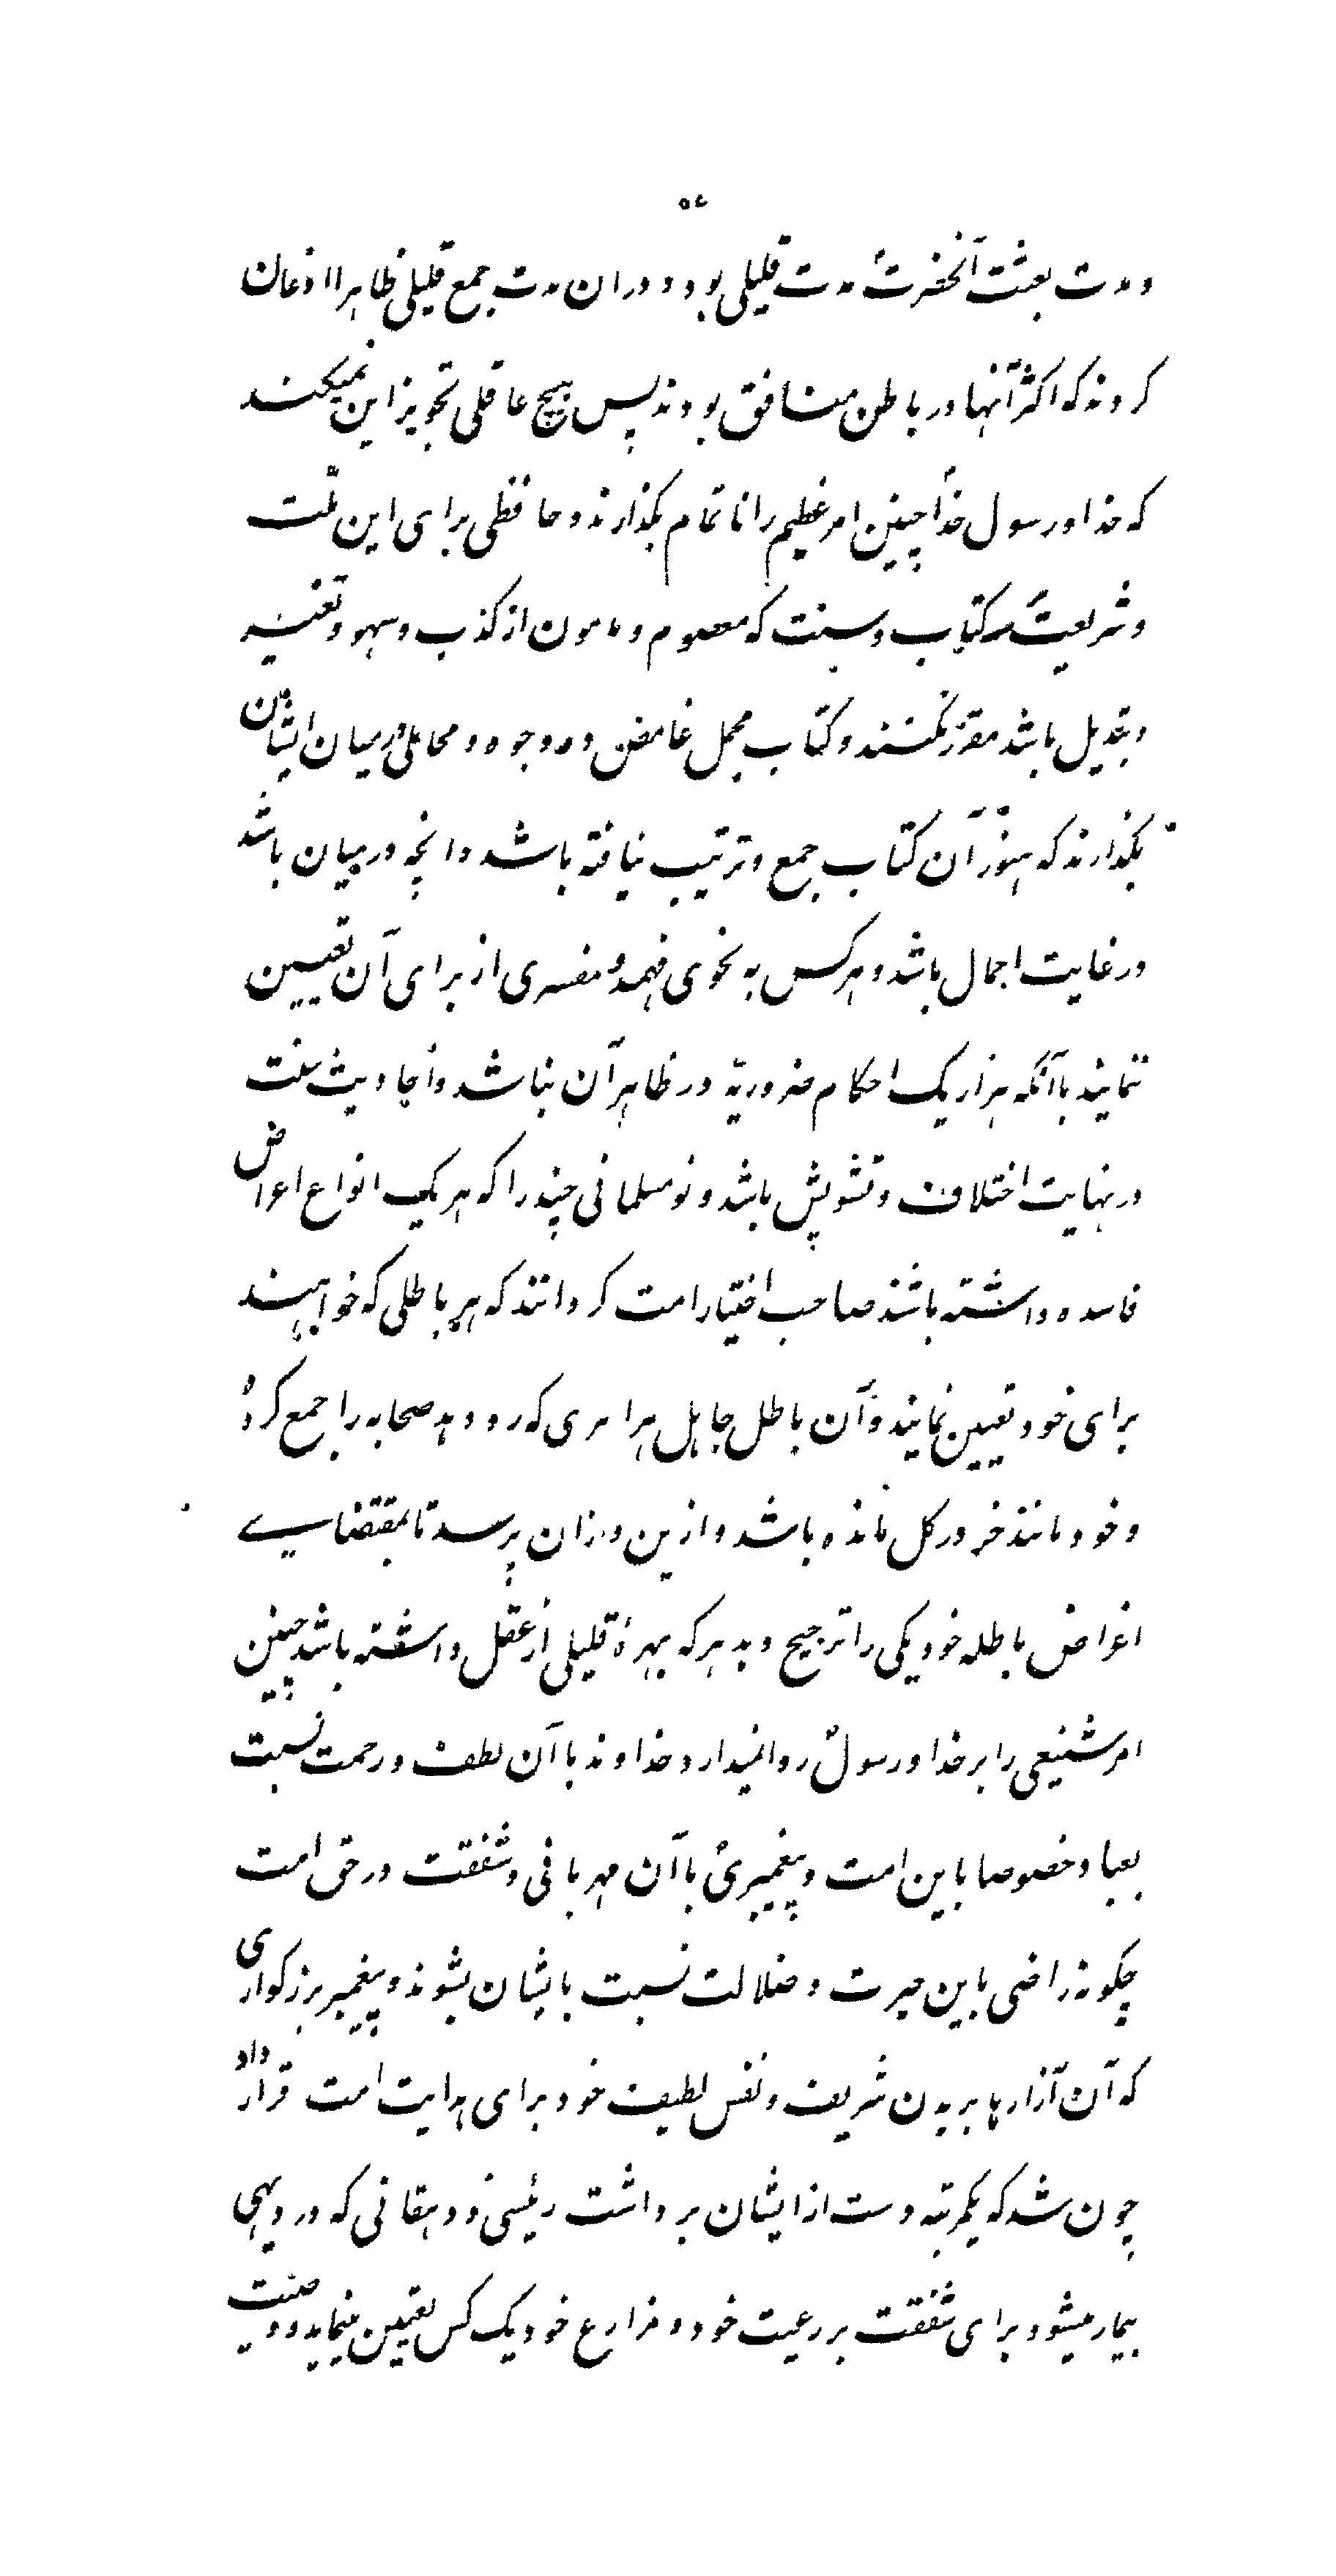 ۵۴
و مدت بعثت آنحضرتؐ مدت قلیلی بود و در ان مدت جمع قلیلی ظاهرا اذعان
کردند که اکثر آنها در باطن منافق بودند پس هیچ عاقلی تجویز این نمیکند
که خدا و رسول خدا چنین امر عظیم را ناتمام بگذارند و حافظی برای این ملّت
و شریعت و کتاب و سنت که معصوم و مامون از کذب و سهو و تغییر
و تبدیل باشد مقرّر نکنند و کتاب مجمل غامض ذو وجوه و محاملی در میان ایشان
بگذارند که هنوز آن کتاب جمع و ترتیب نیافته باشد و انچه در میان باشد
در غایت اجمال باشد و هر کس به نحوی فهمد و مفسری از برای آن تعیین
ننمایند با آنکه هزار یک احکام ضروریّه در ظاهر آن نباشد و احادیث سنت
در نهایت اختلاف و تشویش باشد و نو مسلمانی چند را که هر یک انواع اغراض
فاسده داشته باشند صاحب اختیار امت کردانند که هر باطلی که خواهند
برای خود تعیین نمایند و آن باطل جاهل هر امری که رو دهد صحابه را جمع کرده
و خود مانند خر در کل مانده باشد و ازین و زان پرسد تا بمقتضای
اغراض باطله خود یکی را ترجیح دهد هر که بهرهٔ قلیلی از عقل داشته باشد چنین
امر شنیعی را بر خدا و رسولؐ روا نمیدارد و خداوند با آن لطف و رحمت نسبت
بعباد خصوصا باین امت و پیغمبریؐ با آن مهربانی و شفقت در حق امت
چکونه راضی باین حیرت و ضلالت نسبت بایشان بشوند و پیغمبر بزرکواری
که آن آزارها بر بدن شریف و نفس لطیف خود برای هدایت امت قرار داد
چون شد که یکمرتبه دست از ایشان برداشت رئیسی و دهقانی که در دیهی
بیمار میشود برای شفقت بر رعیت خود و مزارع خود یک کس تعیین مینماید و وصیت